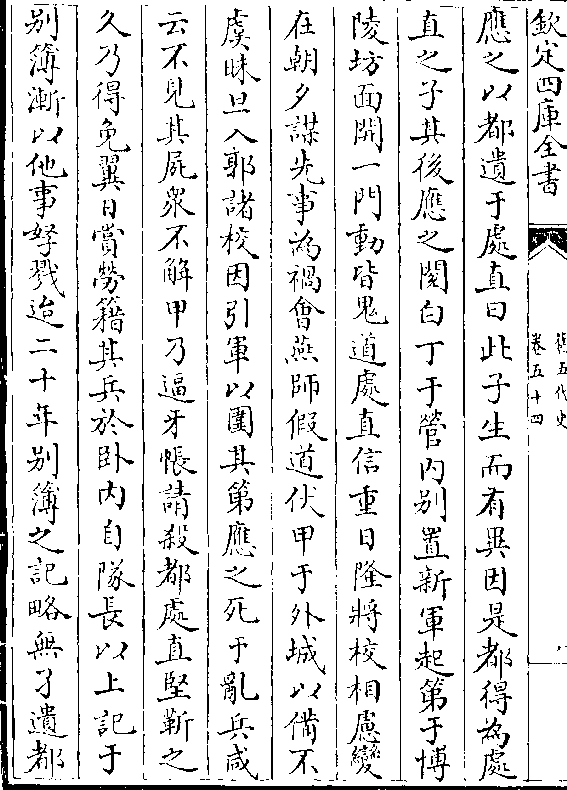 欽定四庫全書
舊五代史
卷五十四
應之以都遺于處直曰此子生而有異因是都得為處
直之子其後應之閱白丁于管内别置新軍起第于博
陵坊面開一門動皆鬼道處直信重日隆將校相慮變
在朝夕謀先事為禍會燕師假道伏甲于外城以備不
虞昧旦入郭諸校因引軍以圍其第應之死于亂兵咸
云不見其屍衆不解甲乃逼牙帳請殺都處直堅靳之
久乃得免翼日賞勞籍其兵於卧内自隊長以上記于
别簿漸以他事孥戮迨二十年别簿之記略無孑遺都